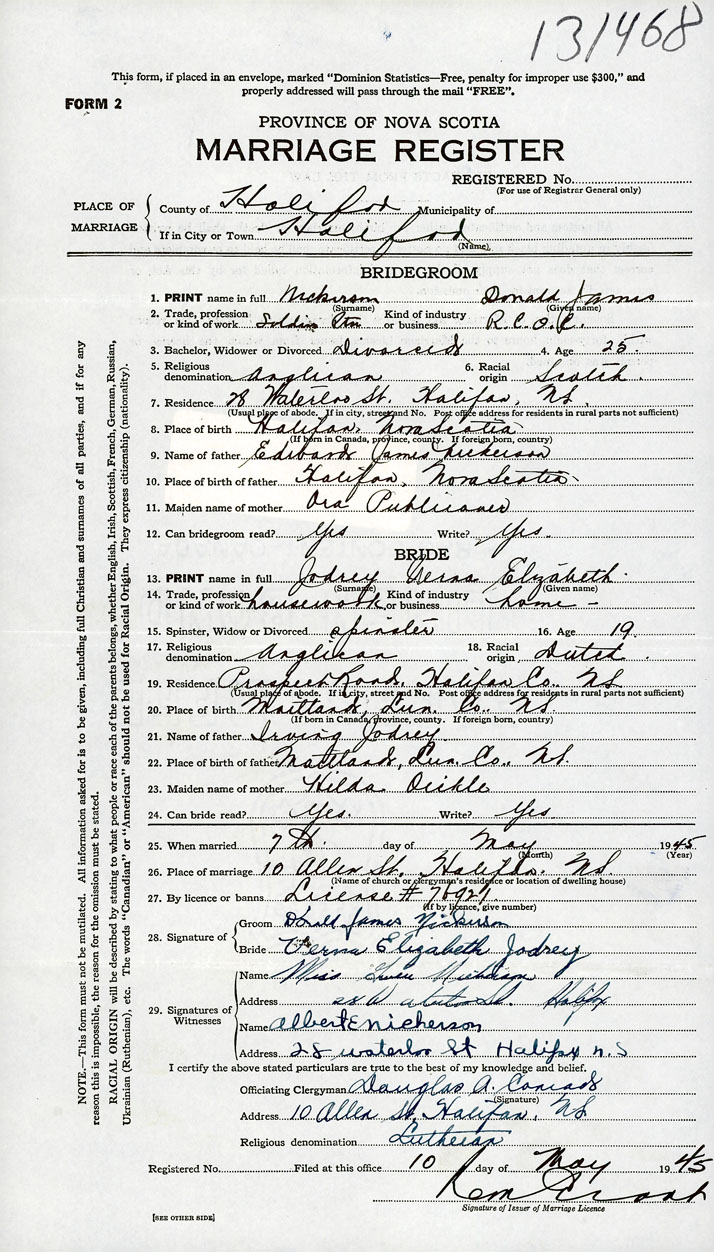 131468
This form, if placed in an envelope, marked "Dominion Statistics—Free, penalty for improper use $300," and
properly addressed will pass through the mail "FREE".
FORM 2
PROVINCE OF NOVA SCOTIA
MARRIAGE REGISTER
REGISTERED No.
(For use of Registrar General only)
PLACE OF MARRIAGE
County of Halifax Municipality of
If in City or Town Halifax
(Name)
BRIDEGROOM
1. PRINT name in full Nickerson Donald James
(Surname) (Given name)
2. Trade, profession or kind of work Soldier Kind of industry or business R.C.O.C.
3. Bachelor, Widower or Divorced Divorced 4. Age 25.
5. Religious denomination Anglican 6. Racial origin Scotch.
7. Residence 28 Waterloo St. Halifax, NS.
(Usual place of abode. If in city, street and No. Post office address for residents in rural parts not sufficient)
8. Place of birth Halifax. Nova Scotia.
(If born in Canada, province, county. If foreign born, country)
9. Name of father Edward James Nickerson
10. Place of birth of father Halifax, Nova Scotia.
11. Maiden name of mother Ora Publicover
12. Can bridegroom read? Yes Write? Yes.
BRIDE
13. PRINT name in full Jodrey Verna Elizabeth.
(Surname) (Given name)
14. Trade, profession or kind of work housework Kind of industry or business home -
15. Spinster, Widow or Divorced spinster 16. Age 19.
17. Religious denomination Anglican 18. Racial origin Dutch.
19. Residence Prospect Road. Halifax Co. NS.
(Usual place of abode. If in city, street and No. Post office address for residents in rural parts not sufficient)
20. Place of birth Maitland, Lun. Co. NS.
(If born in Canada, province, county. If foreign born, country)
21. Name of father Irving Jodrey
22. Place of birth of father Maitland, Lun. Co., NS.
23. Maiden name of mother Hilda Deikle
24. Can bride read? Yes. Write? Yes.
25. When married 7th. day of May 1945
(Month) (Year)
26. Place of marriage 10 Allen St. Halifax. NS.
(Name of church or clergyman's residence or location of dwelling house)
27. By licence or banns License # 78927.
(If by licence, give number)
28. Signature of
Groom Donald James Nickerson
Bride Verna Elizabeth Jodrey
29. Signatures of Witnesses
Name Miss
Address St. Halifax
Name Albert E Nickerson
Address 28 waterloo St Halifax n.s
I certify the above stated particulars are true to the best of my knowledge and belief.
Officiating Clergyman Douglas A. Conrad
(Signature)
Address 10 Allen St. Halifax, NS
Religious denomination Lutheran
Registered No. Filed at this office 10 day of May 1945
Signature of Issuer of Marriage Licence
[SEE OTHER SIDE]
NOTE.—This form must not be mutilated. All information asked for is to be given, including full Christian and surnames of all parties, and if for any
reason this is impossible, the reason for the omission must be stated.
RACIAL ORIGIN will be described by stating to what people or race each of the parents belongs, whether English, Irish, Scottish, French, German, Russian,
Ukrainian (Ruthenian), etc. The words "Canadian" or "American" should not be used for Racial Origin. They express citizenship (nationality).